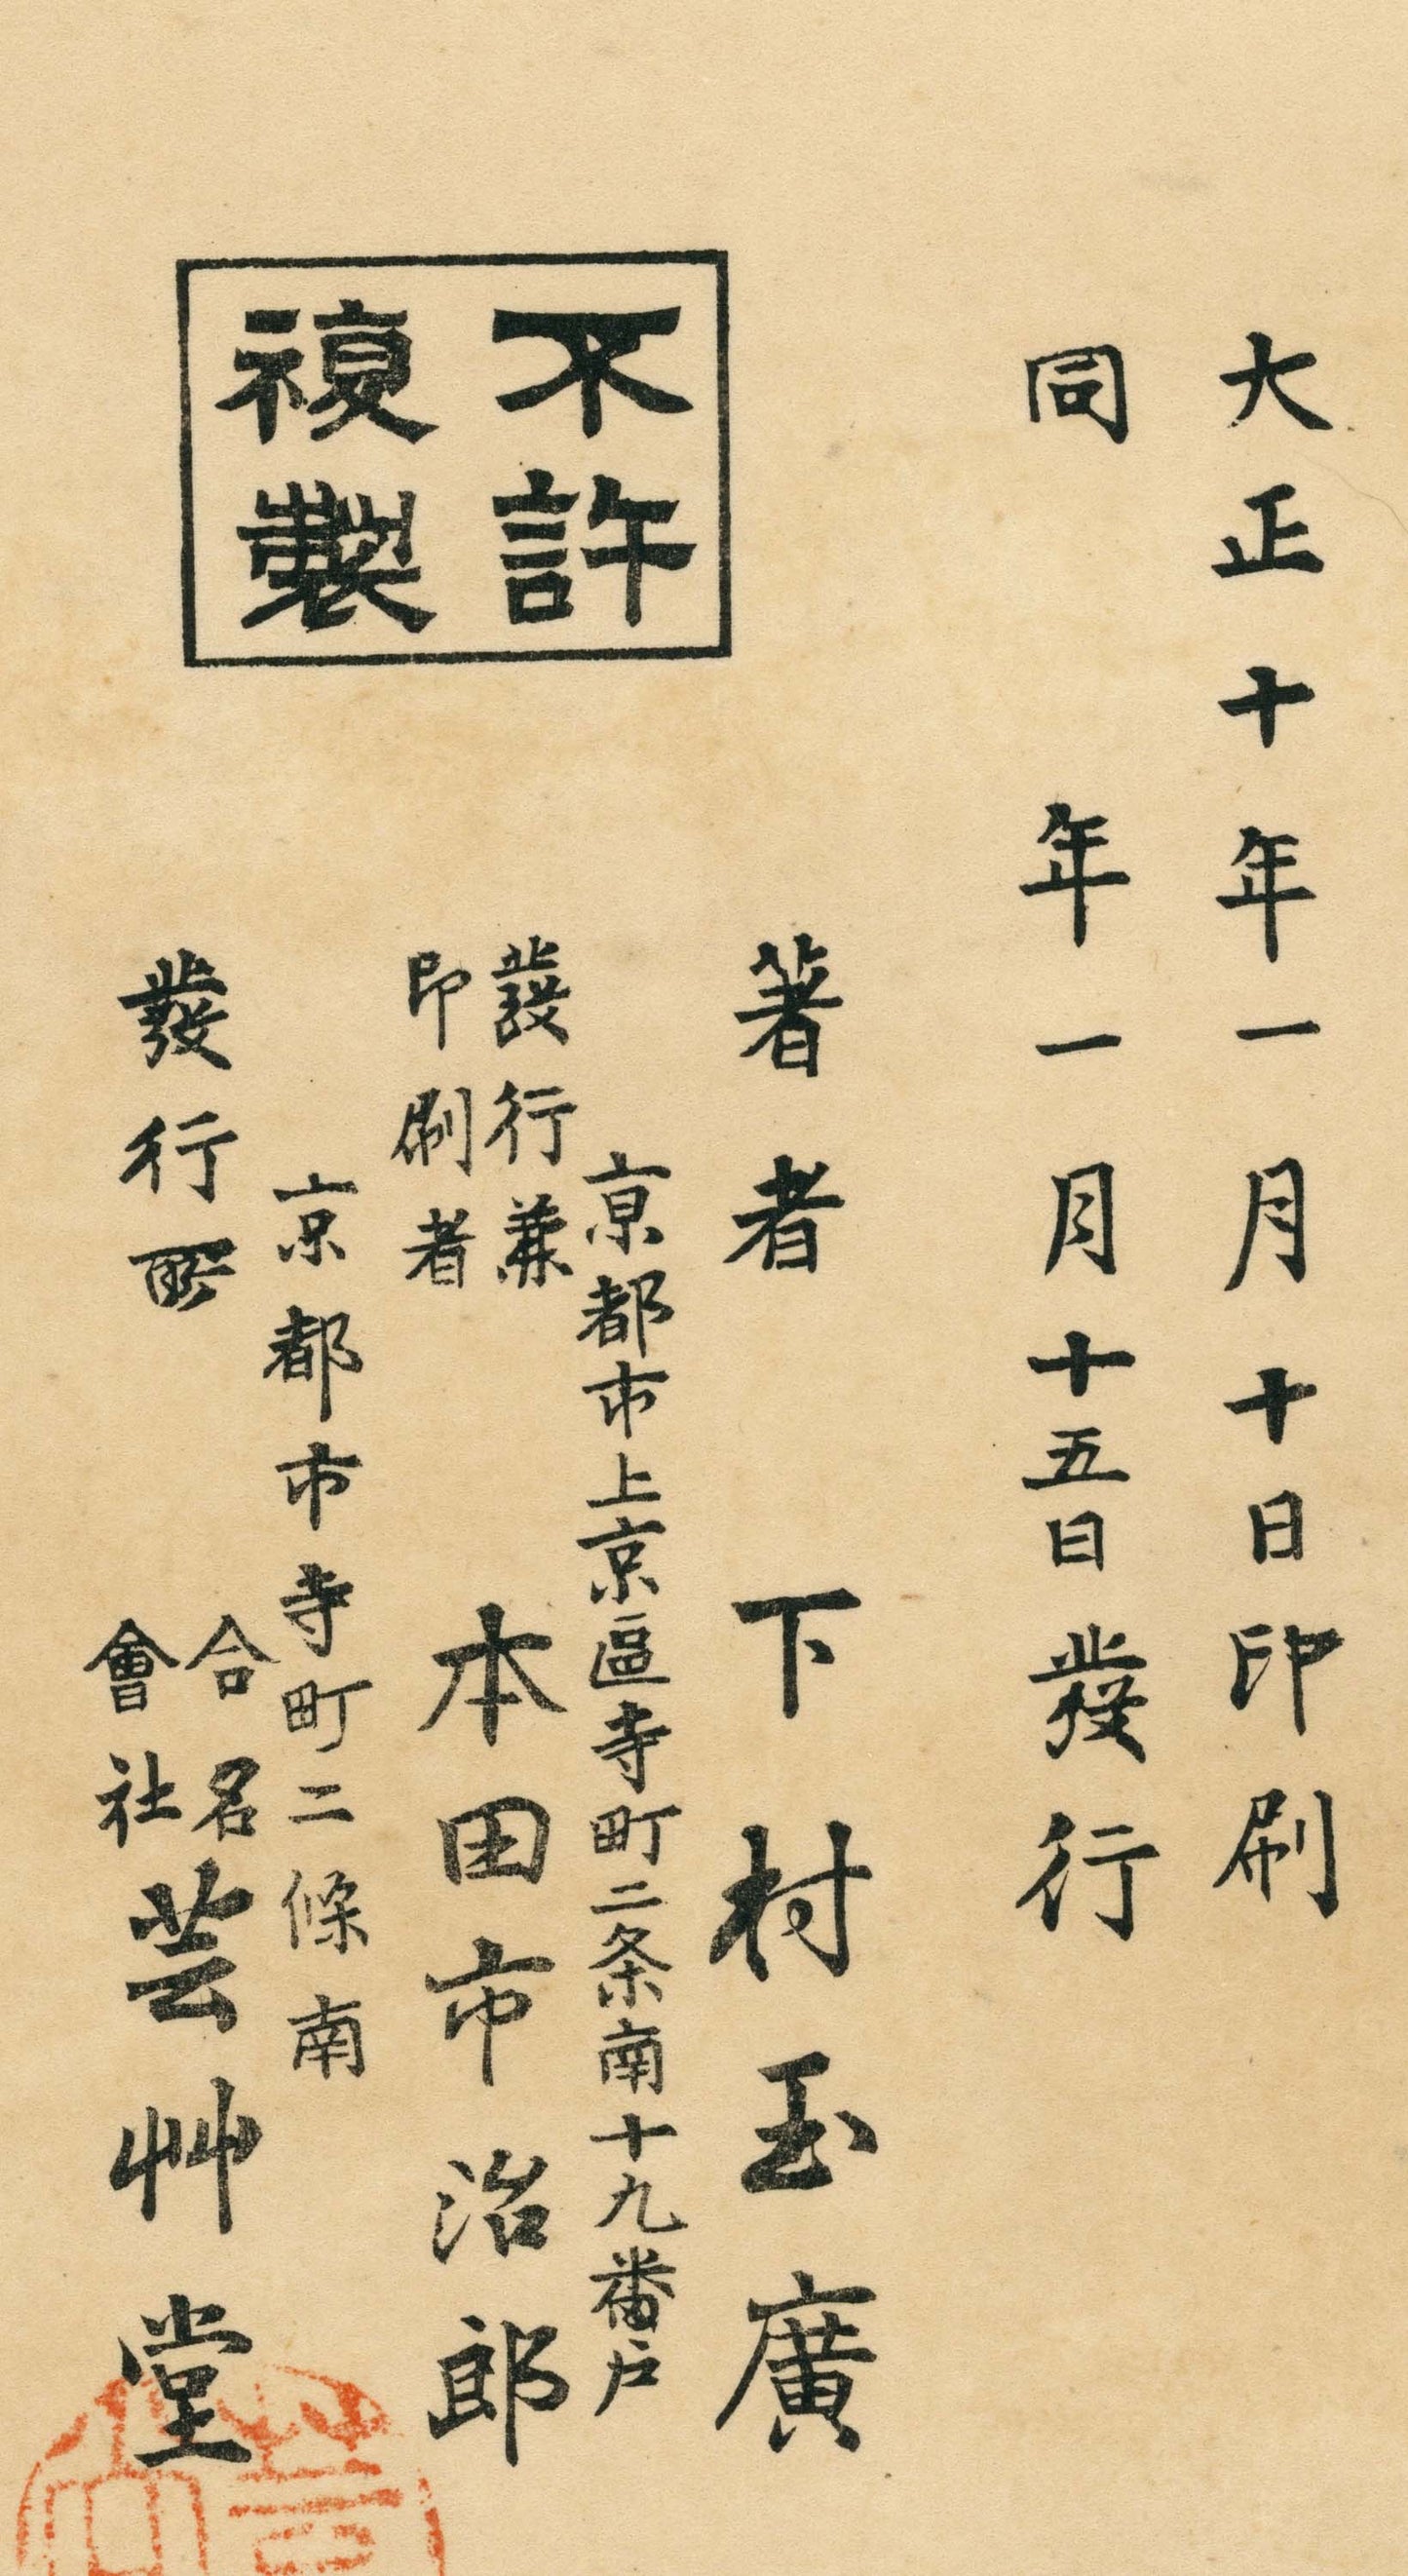 大正十年一月十日印刷
同年一月十五日發行
不許
複製
著者 下村玉廣
京都市上京區寺町二条南十九番戸
發行兼
印刷者
本田市治郎
京都市寺町二條南
發行所
合名
會社
芸艸堂